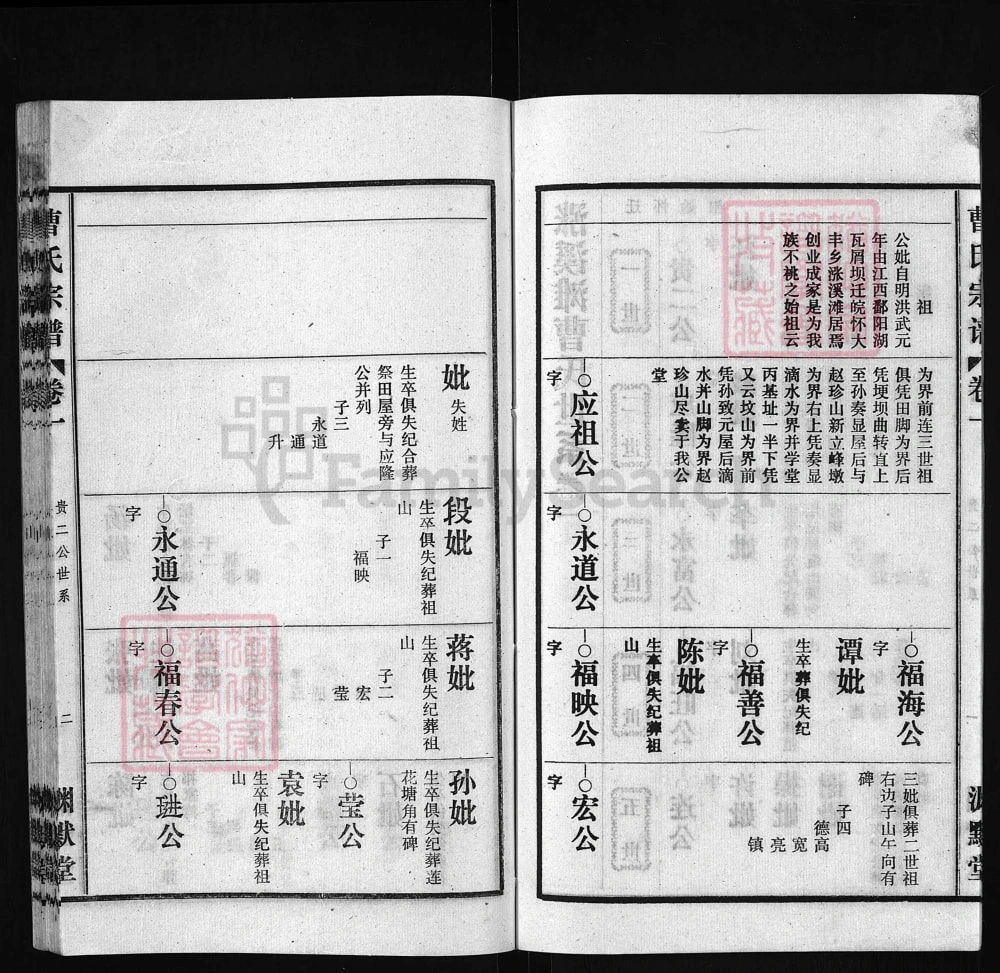 曹氏宗谱
卷一
祖
公妣自明洪武元
年由江西鄱阳湖
瓦屑坝迁皖怀大
丰乡涨溪滩居焉
创业成家是为我
族不祧之始祖云
为界前连三世祖
俱凭田脚为界后
凭埂坝曲转直上
至孙奏显屋后与
赵珍山新立峰墩
为界右上凭奏显
滴水为界并学堂
丙基址一半下凭
又云坟山为界前
凭孙致元屋后滴
水并山脚为界赵
珍山尽卖于我公
堂
○应祖公
字
○永道公
字
○福海公
字
谭妣
生卒葬俱失纪
○福善公
字
陈妣
生卒俱失纪葬祖
山
○福映公
字
三妣俱葬二世祖
右边子山午向有
碑
子四
德高
宽
亮
镇
○宏公
字
渊默堂
妣
失姓
生卒俱失纪合葬
祭田屋旁与应隆
公并列
子三
永道
通
升
段妣
生卒俱失纪葬祖
山
子一
福映
○永通公
字
蒋妣
生卒俱失纪葬祖
山
子二
宏
莹
○福春公
字
孙妣
生卒俱失纪葬莲
花塘角有碑
○莹公
字
袁妣
生卒俱失纪葬祖
山
○琎公
字
曹氏宗谱
卷一
贵二公世系
二
渊默堂
FamilySearch